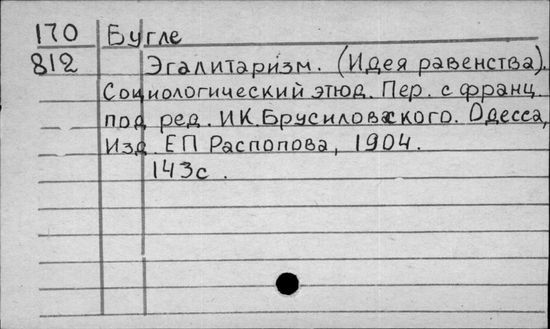 170 Бугле
812 Эгалитаризм. (Идея равенства).
Социологический этюд. Пер. с франц.
под ред. И.К.Брусиловского. Одесса,
Изд. ЕП Распопова, 1904.
143с.